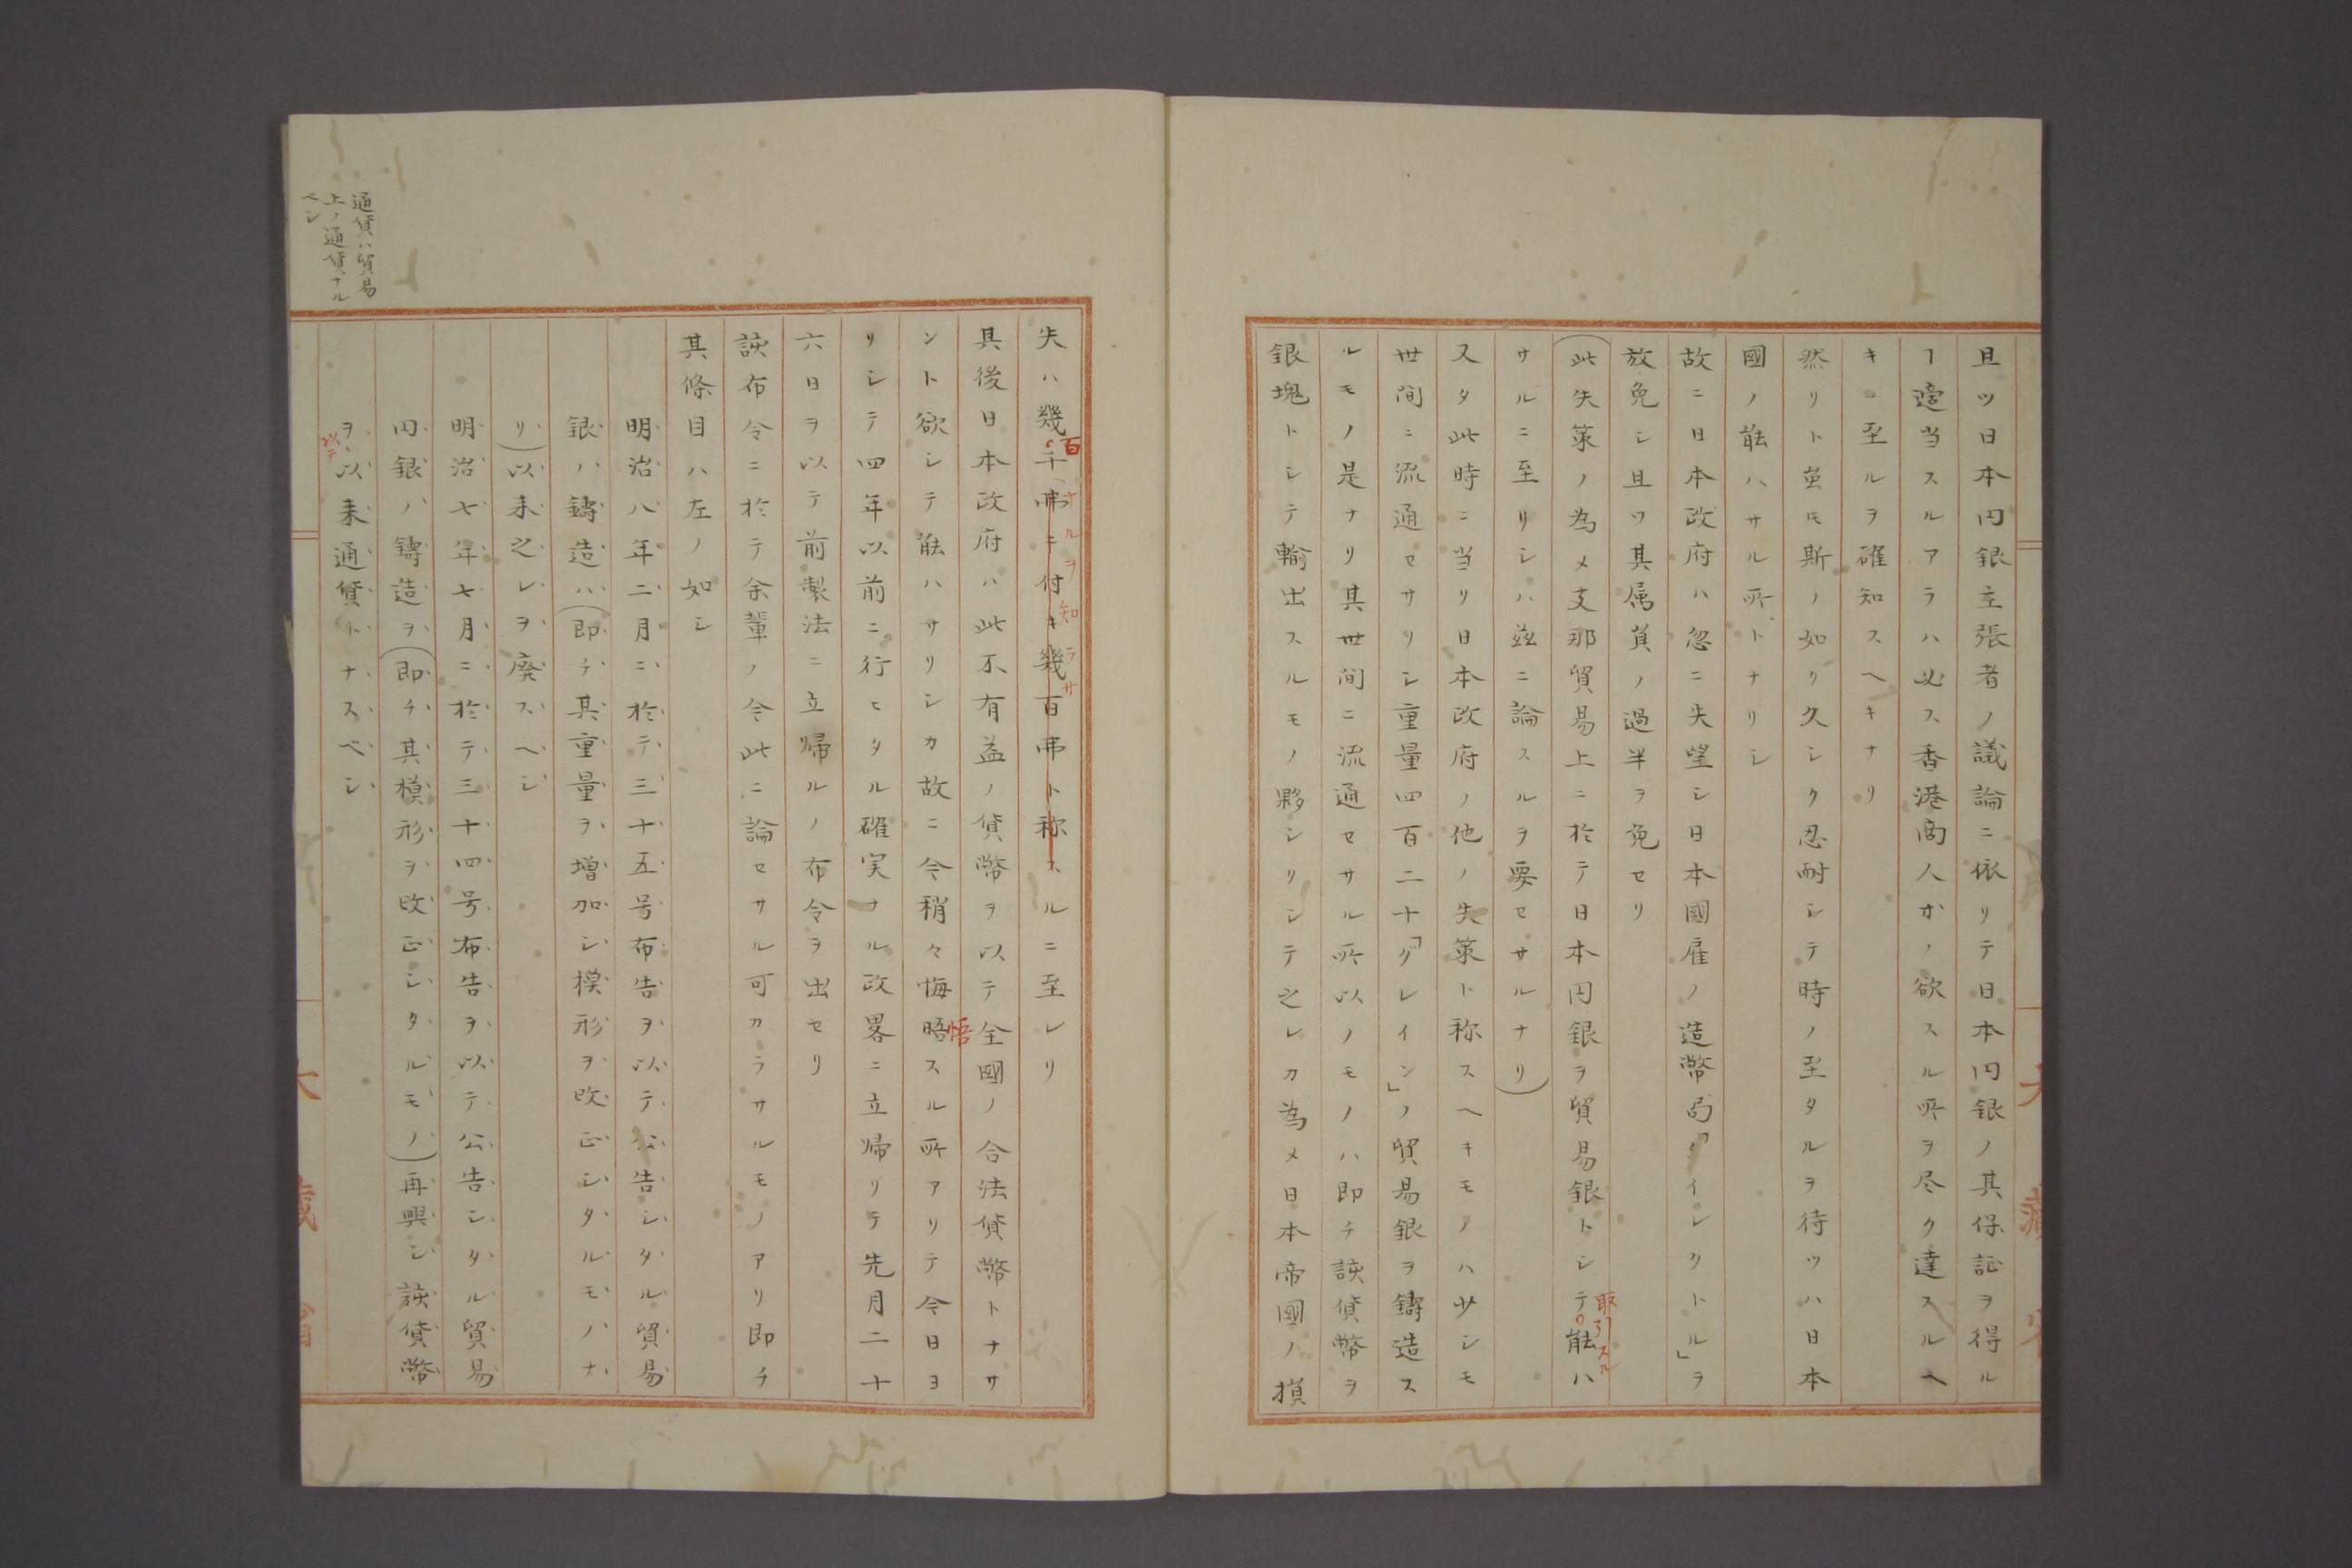 且ツ日本円銀主張者ノ議論ニ依リテ日本円銀ノ其保証ヲ得ル
ヿ適当スルアラハ必ス香港商人カノ欲スル所ヲ尽ク達スルヘ
キニ至ルヲ確知スヘキナリ
然リト虽モ斯ノ如ク久シク忍耐シテ時ノ至タルヲ待ツハ日本
國ノ能ハサル所トナリシ
故ニ日本政府ハ忽ニ失望シ日本國雇ノ造幣局「ダイレクトル」ヲ
放免シ且ツ其属員ノ過半ヲ免セリ
(此失策ノ為メ支那貿易上ニ於テ日本円銀ヲ貿易銀トシテ能ハ
取引スル
サルニ至リシハ茲ニ論スルヲ要セサルナリ)
又タ此時ニ当リ日本政府ノ他ノ失策ト称スヘキモノハ少シモ
世間ニ流通セサリシ重量四百二十「グレイン」ノ貿易銀ヲ鋳造ス
ルモノ是ナリ其世間ニ流通セサル所以ノモノハ即チ該貨幣ヲ
銀塊トシテ輸出スルモノ夥シリシテ之レカ為メ日本帝國ノ損
失ハ幾千弗ニ付キ幾百弗ト称スルニ至レリ
百
ナルヲ知ラサ
其後日本政府ハ此不有益ノ貨幣ヲ以テ全國ノ合法貨幣トナサ
ント欲シテ能ハサリシカ故ニ今稍々悔晤スル所アリテ今日ヨ
悟
リシテ四年以前ニ行ヒタル確実ナル政畧ニ立帰リテ先月二十
六日ヲ以テ前製法ニ立帰ルノ布令ヲ出セリ
該布令ニ於テ余輩ノ今此ニ論セサル可カラサルモノアリ即チ
其條目ハ左ノ如シ
明治八年二月ニ於テ三十五号布告ヲ以テ公告シタル貿易
銀ハ鋳造ハ(即チ其重量ヲ増加シ模形ヲ改正シタルモノナ
リ)以来之レヲ廃スヘシ
明治七年七月ニ於テ三十四号布告ヲ以テ公告シタル貿易
円銀ノ鋳造ヲ(即チ其模形ヲ改正シタルモノ)再興シ該貨幣
ヲ以来通貨トナスベシ
以テ
通貨ハ貿易
上ノ通貨ナル
ヘシ